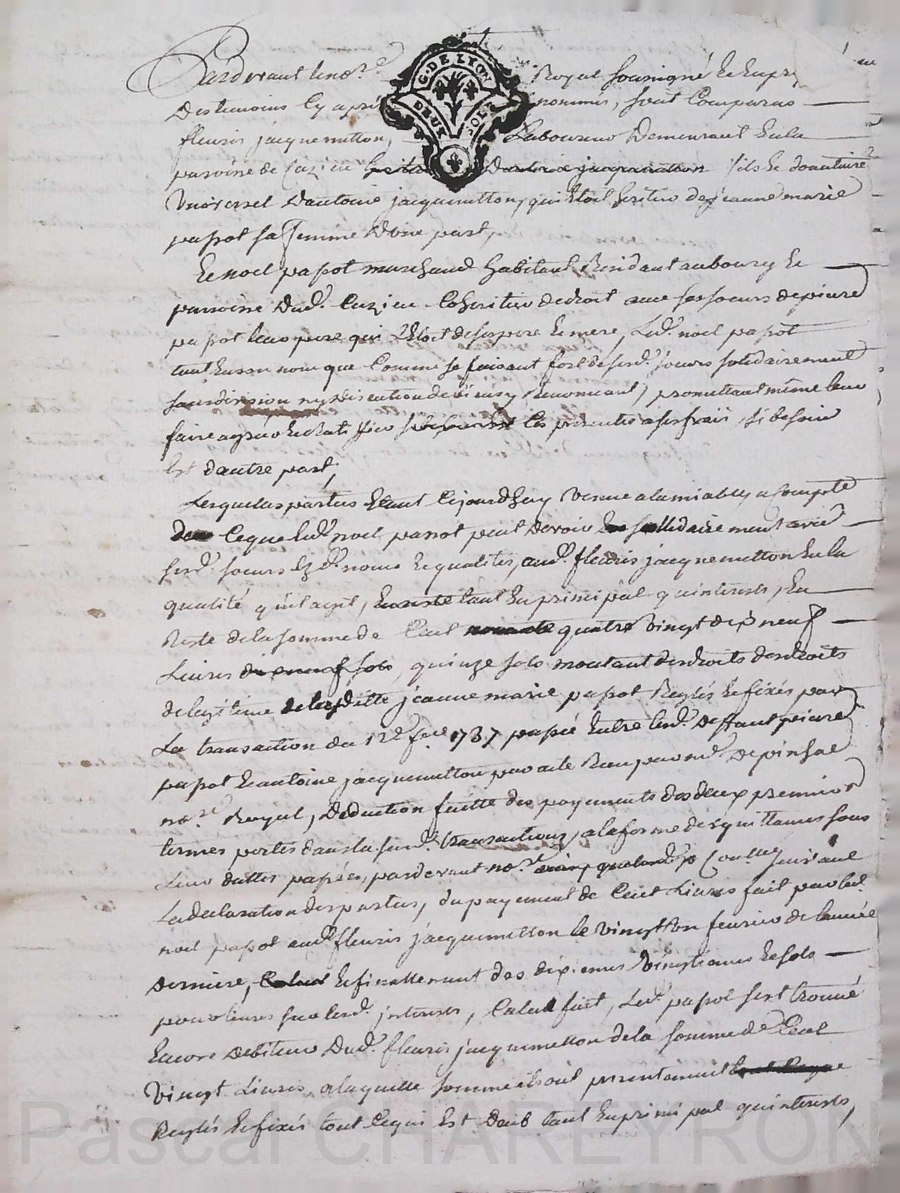 Pardevant le no.re Royal sousigné Et En pr
Des temoins Cy apres nommés, sont Comparus
fleuris jacquemitton, Laboureur Demeurant En la
paroisse de Cuzieu fils Et donataire
Universel D'antoine jacquemitton, qui Etoit heritier de jeanne marie
papot sa femme D'une part,
Et noel papot marchand habitant Residant au bourg Et
paroisse Dud. Cuzieu Coheritier de droit avec ses soeurs de pierre
papot leur pere qui L'Etoit de ses pere Et mere, Led. noel papot
tant En son nom que Comme se faisant fort de sesd. soeurs solidairement
sans division ny discution de biens y Renonceant, promettant même leur
faire agreer Et Ratiffier Ces presentes a ses frais si besoin
Est d'autre part,
Lesquelles parties Etant Cejourd'huy Venue a l'amiable, a Compte
Ce que Led. noel papot peut devoir solidairement avec
sesd. soeurs Ez d. noms Et qualités, aud. fleuris jacquemitton En la
qualité qu'il agit, En reste tant En principal qu'interests, En
Reste de la somme de Cent quatre Vingt dix neuf
Livres quinze sols montant des droits des droits
de legitime de laditte jeanne marie papot Reglés Et fixés par
La transaction du 12e 1737 passée Entre led. Deffunt pierre
papot Et antoine jacquemitton par acte Reçu par me Depinhac
no.re Royal, Deduction faitte des payements des deux premiers
termes portés dans la susd. transaction, a la forme des quittances sous
Leur dattes passées, pardevant no.re Coulley suivant
La declaration des parties, du payement de Cent Livres fait par led.
noel papot aud. fleuris jacquemitton le Vingt un fevrier de l'année
derniere, Et finallement des dixiemes Vingtiemes Et sols
pour livres sur lesd. interests, Calcul fait, Led. papot s'est trouvé
Encore Debiteur Dud. fleuris jacquemitton de la somme de Cent
Vingt Livres, a laquelle somme ils ont presentement
Reglés Et fixés tout Ce qui Est Deub tant En principal qu'interests,
G. DE LYON
DEUX SOLS
Pascal CHAREYRON